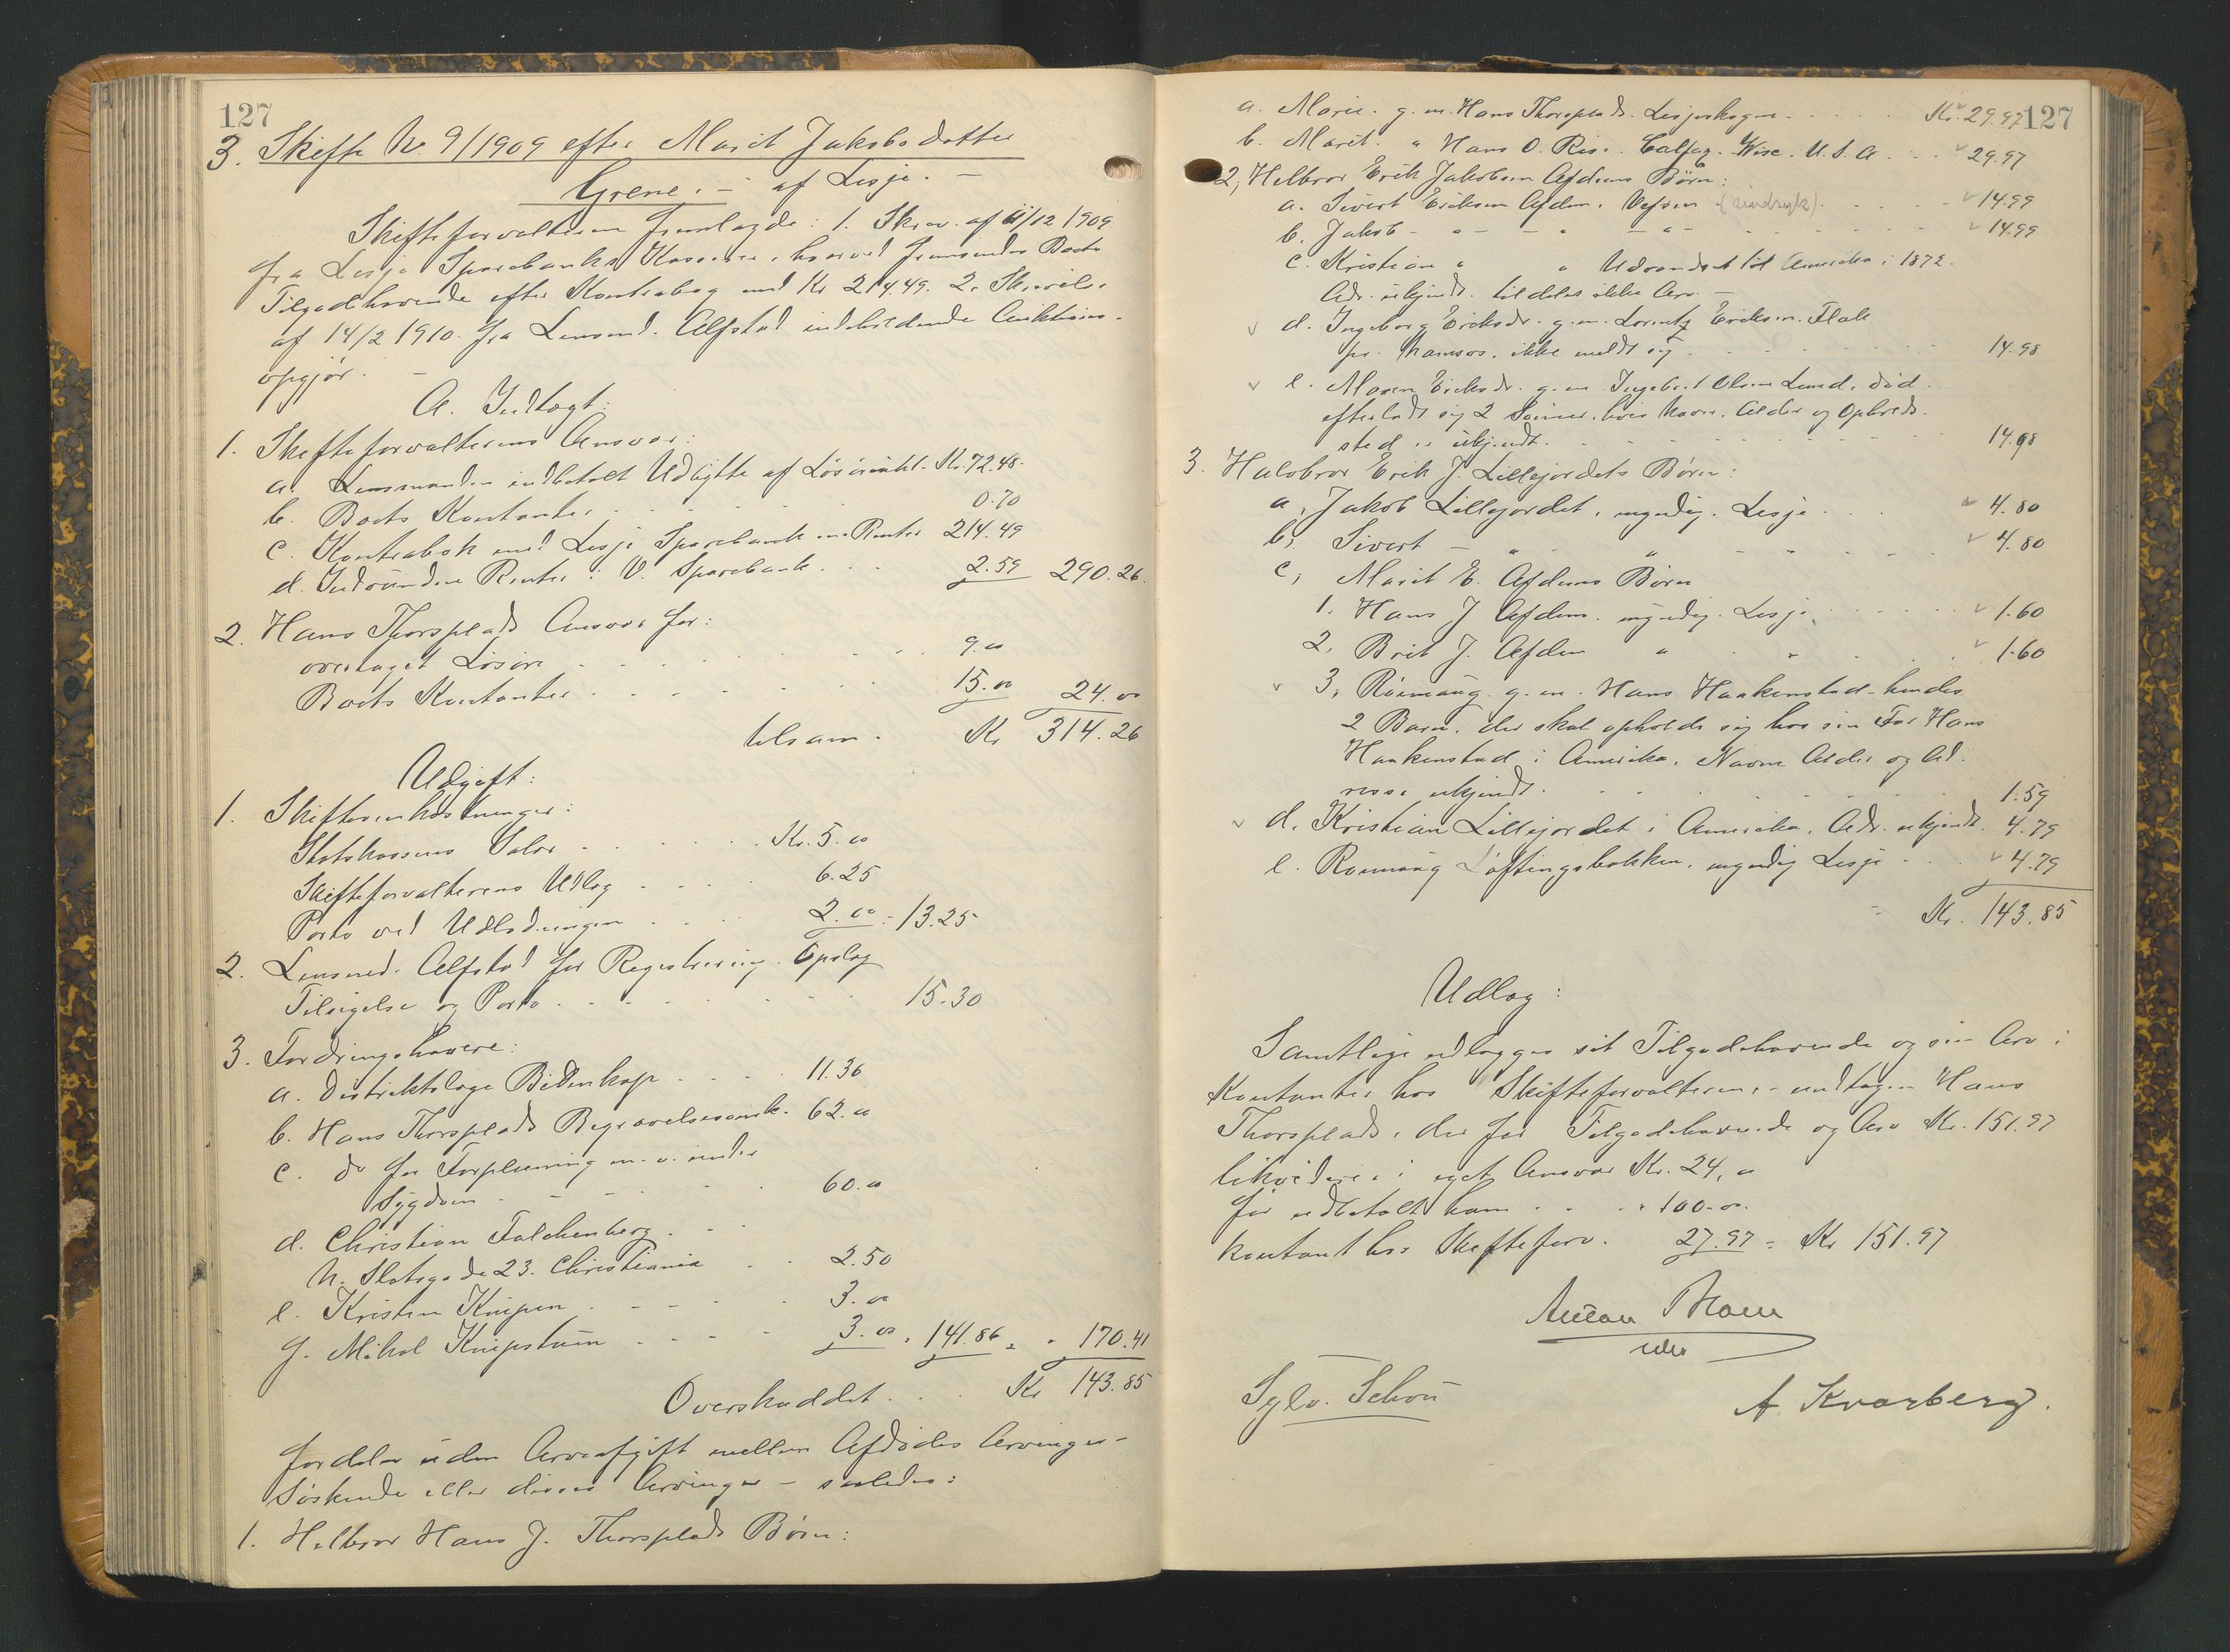 127
3. Skifte No. 9/1909 efter Marit Jakobsdatter
Grene. – af Lesje. –
Skifteforvalteren fremlagde: 1. Skriv. af 11/12 1909
fra Lesje Sparebanks Kasserer, hvorved fremsendes Boets
Tilgodehavende efter Kontrabog med Kr 214.49. 2. Skrivelse
af 14/2 1910 fra Lensmd. Alfstad indeholdende Auktions-
opgjør. –
A. Indtægt:
1. Skifteforvalterens Ansvar:
a. Lensmanden indbetalt Udbytte af Løsøreaukt. Kr. 72.48.
b. Boets Kontanter . . . . 0.70
c. Kontrabok med Lesje Sparebank m. Renter 214.49
d. Indvundne Renter i V. Sparebank . . . 2.59 290.26.
2. Hans Thorsplads Ansvar for:
overtaget Løsøre . . . . 9.00
Boets Kontanter . . . . 15.00 24.00
tilsam. Kr 314.26
Udgift:
1. Skifteomkostninger:
Statskassens Salær . . . . Kr. 5.00
Skifteforvalterens Udlæg . . . . 6.25
Porto ved Udlodningen . . . 2.00 = 13.25
2. Lensmd. Alfstad for Registrering. Opslag
Tilsigelse og Porto . . . . 15.30
3. Fordringshavere:
a. Distriktslæge Bidenkap . . . . 11.36
b. Hans Thorsplads Begravelsesomk. 62.00
c. do for Forpleining m. v. under
Sygdom . . . . 60.00
d. Christian Falchenberg . . .
N. Slotsgade 23. Christiania . . 2.50
e. Kristen Knipen . . . . 3.00
f. Mikal Knipstuen . . . . 3.00 . 141.86 = . 170.41
Overskuddet . . . Kr 143.85
fordeles uden Arveafgift mellem Afdødes Arvinger –
Søskende eller disses Arvinger – saaledes:
1. Helbror Hans J. Thorsplads Børn:
127
a. Marie. g. m. Hans Thorsplads. Lesjeskogen . . . . Kr. 29.97
b. Marit. " Hans O. Rise. Colfax. Wisc. U. S. A. . . 29.97
2, Helbror Erik Jakobsen Afdems Børn:
a. Sivert Eriksen Afdem. Vefsen . . . . 14.99
b. Jakob – " – – " – " – . . . 14.99
c. Kristian " " Udvandret til Amerika i 1872.
Adr. ukjendt. tildeles ikke Arv. –
d. Ingeborg Eriksdr. g. m. Lorentz Eriksen. Flak
pr. Namsos. ikke meldt sig . . . . 14.98
e. Maren Eriksdr. g. m. Ingebret Olsen Lund, død.
efterladt sig 2 Sønner, hvis Navn, Alder og Opholds-
sted er ukjendt. . . . . 14.98
3. Halvbror Erik J. Lillejordets Børn:
a, Jakob Lillejordet, myndig. Lesje . . . 4.80
b, Sivert – " " – " – . . 4.80
c, Marit E. Afdems Børn
1. Hans J Afdem. myndig. Lesje. . . . 1.60
2, Brit J. Afdem " " . . 1.60
3, Rønnaug. g. m. Hans Haakenstad – hendes
2 Barn, der skal opholde sig hos sin Far Hans
Haakenstad i Amerika. Navn Alder og Ad-
resse ukjendt. . . . . 1.59
d. Kristian Lillejordet i Amerika. Adr. ukjendt. 4.79
e. Rønnaug Løftingsbakken. myndig Lesje . . . 4.79
= Kr. 143.85
Udlæg:
Samtlige udlægges sit Tilgodehavende og sin Arv i
Kontanter hos Skifteforvalteren, – undtagen Hans
Thorsplads, der for Tilgodehavende og Arv Kr. 151.97
likvideres i eget Ansvar Kr. 24,00
før udbetalt ham . . . " 100.00.
kontant hos Skifteforv. 27.97 = Kr 151.97
Anton Thom
Sylv. Schou
A Kvarberg.